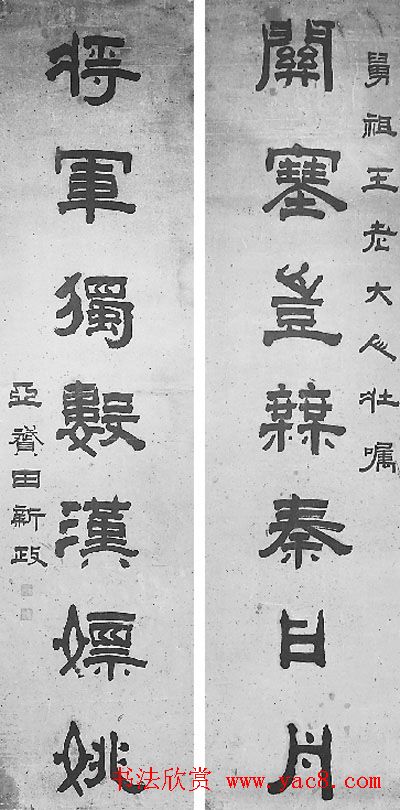 舅祖王老大人壯囑
關塞豈無秦日月
將軍獨數漢嫖姚
亞田新政
书法欣赏 www.yac8.com